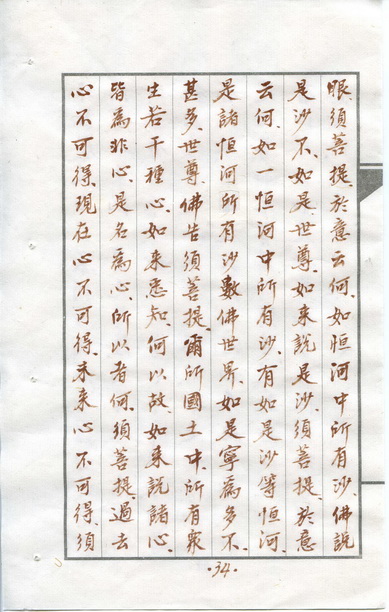 眼、須菩提、於意云何、如恒河中所有沙、佛說
是沙不、如是、世尊、如來說是沙、須菩提、於意
云何、如一恒河中所有沙、有如是沙等恒河、
是諸恒河所有沙數佛世界、如是寧為多不、
甚多、世尊、佛告須菩提、爾所國土中、所有眾
生若干種心、如來悉知、何以故、如來說諸心、
皆為非心、是名為心、所以者何、須菩提、過去
心不可得、現在心不可得、未來心不可得、須
·34·